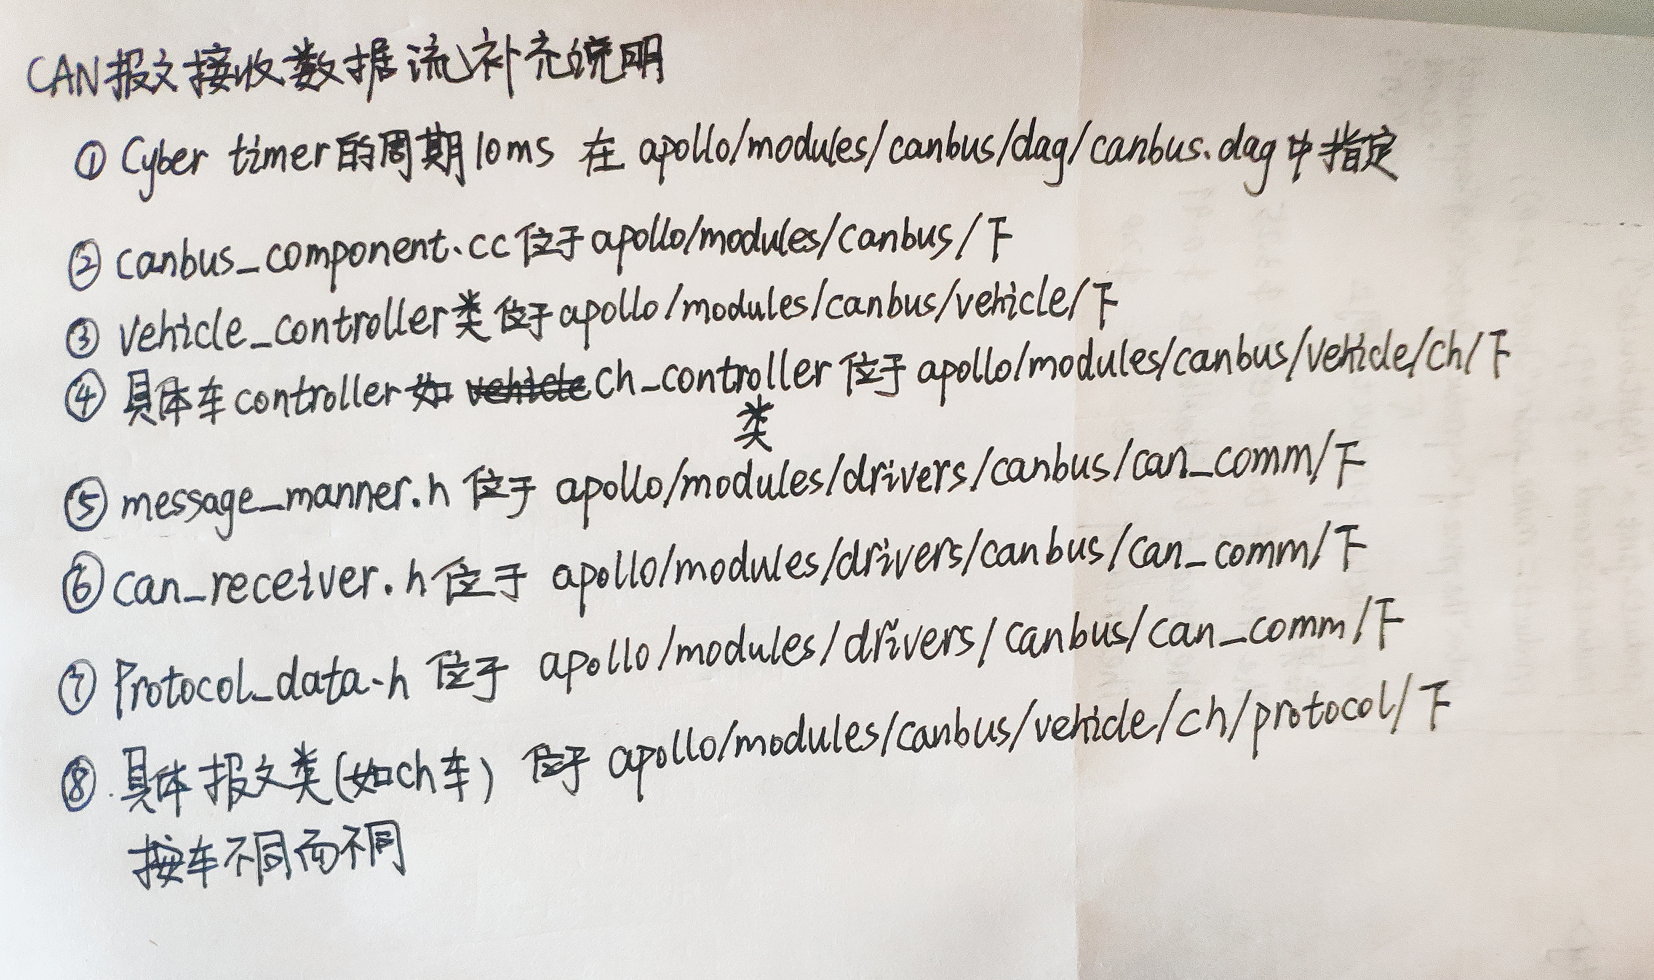 CAN报文接收数据流补充说明
① Cyber timer的周期10ms 在 apollo/modules/canbus/dag/canbus.dag中指定
② canbus_component.cc位于apollo/modules/canbus/下
③ vehicle_controller类位于apollo/modules/canbus/vehicle/下
④ 具体车controller如 vehicle ch_controller位于apollo/modules/canbus/vehicle/ch/下
类
⑤ message_manner.h 位于 apollo/modules/drivers/canbus/can_comm/下
⑥ can_receiver.h位于 apollo/modules/drivers/canbus/can_comm/下
⑦ Protocol_data.h 位于 apollo/modules/drivers/canbus/can_comm/下
⑧ 具体报文类(如ch车) 位于 apollo/modules/canbus/vehicle/ch/protocol/下
按车不同而不同